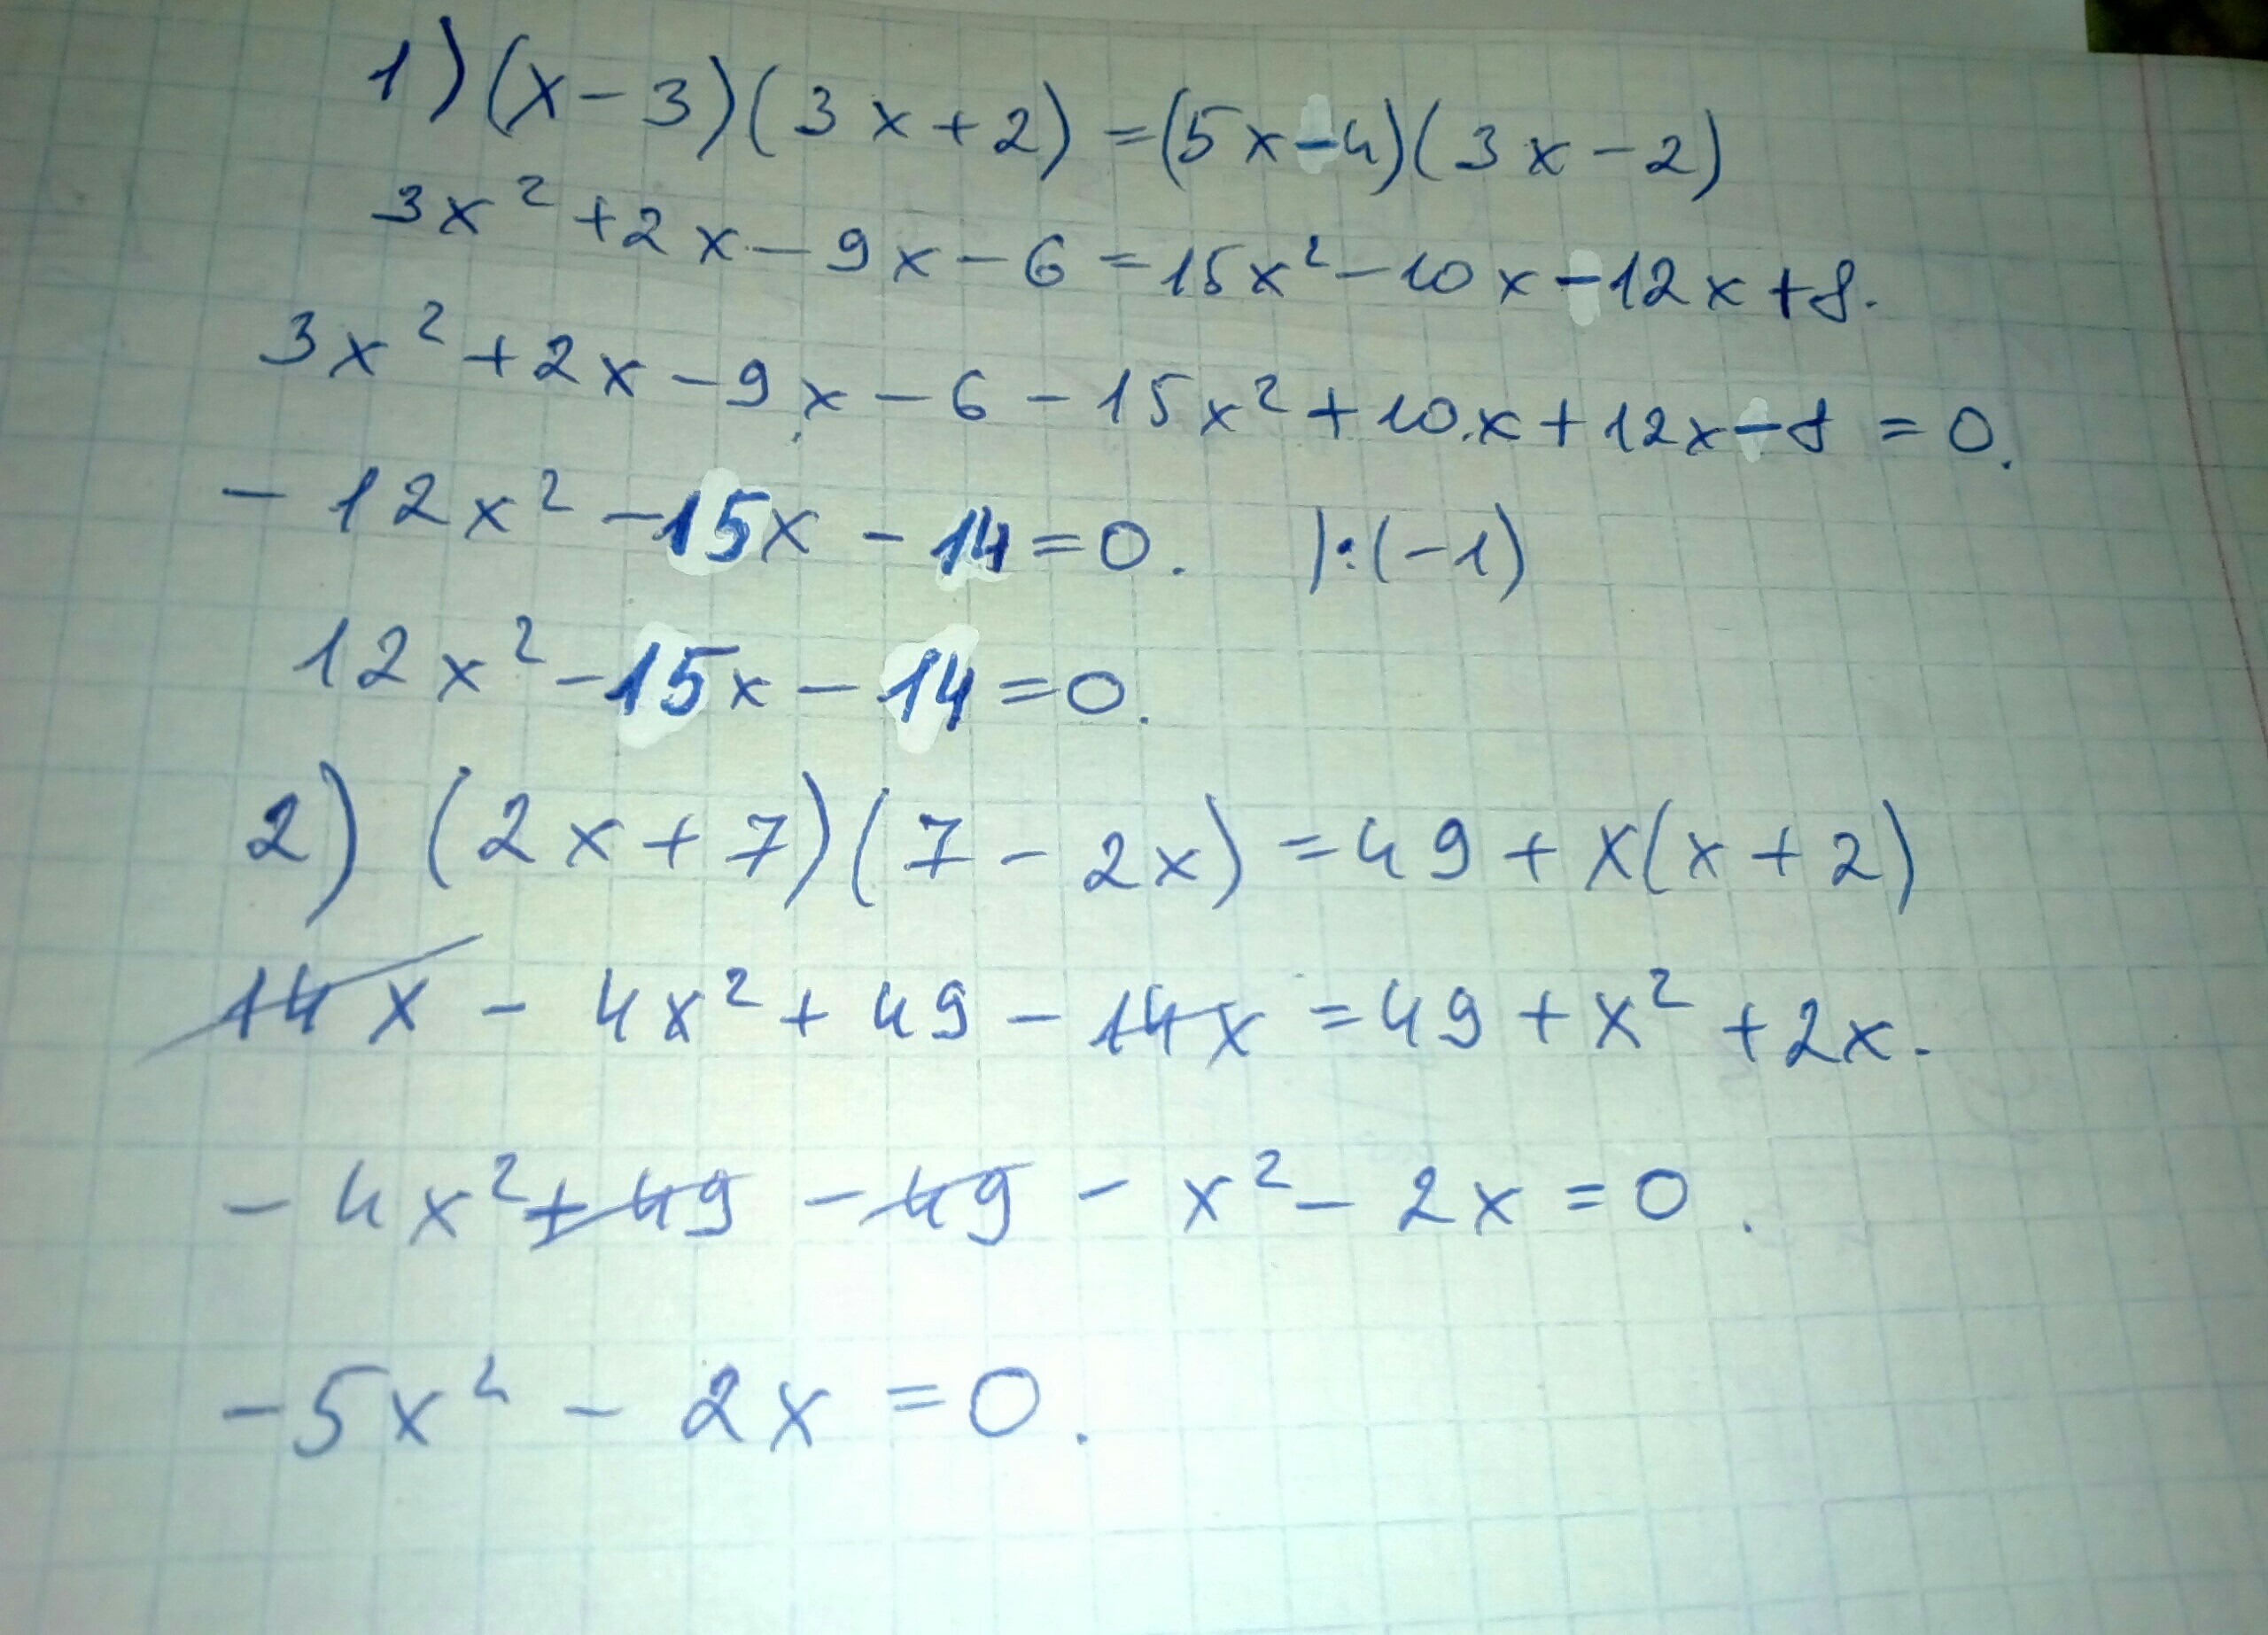 1) (x-3)(3x+2)=(5x-4)(3x-2)
3x²+2x-9x-6=15x²-10x-12x+8.
3x²+2x-9x-6-15x²+10x+12x-8=0.
-12x²-15x-14=0. |:(-1)
12x²-15x-14=0.
2) (2x+7)(7-2x)=49+x(x+2)
14x-4x²+49-14x=49+x²+2x.
-4x²+49-49-x²-2x=0.
-5x²-2x=0.